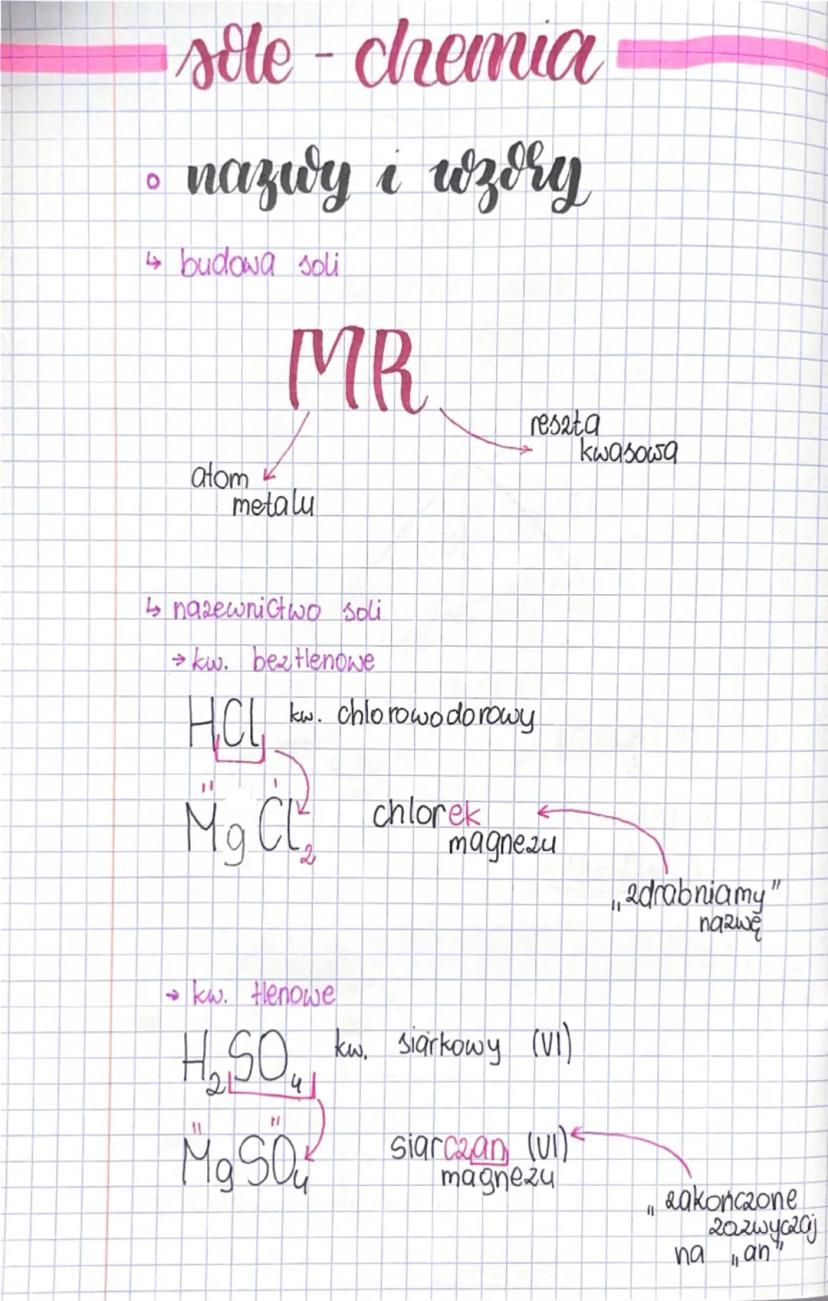 sole - chemia
o nazwy i wzory
↳ budowa soli
MR
reszta
kwasowa
atom
metalu
↳ nazewnictwo soli
→ kw. beztlenowe
HCl kw. chlorowodorowy
II I
MgCl₂ chlorek
magnezu
„zdrabniamy"
nazwę
→ kw. tlenowe
H₂SO₄ kw. siarkowy (VI)
II II
MgSO₄ siarczan (VI)
magnezu
„zakończone
zazwyczaj
na „an"